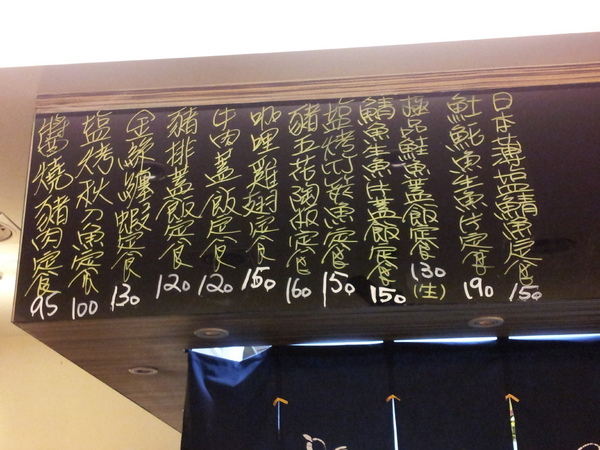 日本薄塩鯖魚定食 150
魠魠魚生魚片定食 190
極品鮭魚蓋飯定食 130 (生)
鯖魚生魚片蓋飯定食 150
塩烤竹筴魚定食 150
豬五花陶板定食 160
咖哩雞翅定食 150
牛肉蓋飯定食 120
豬排蓋飯定食 120
金絲纏蝦定食 130
塩烤秋刀魚定食 100
醬燒豬肉定食 95